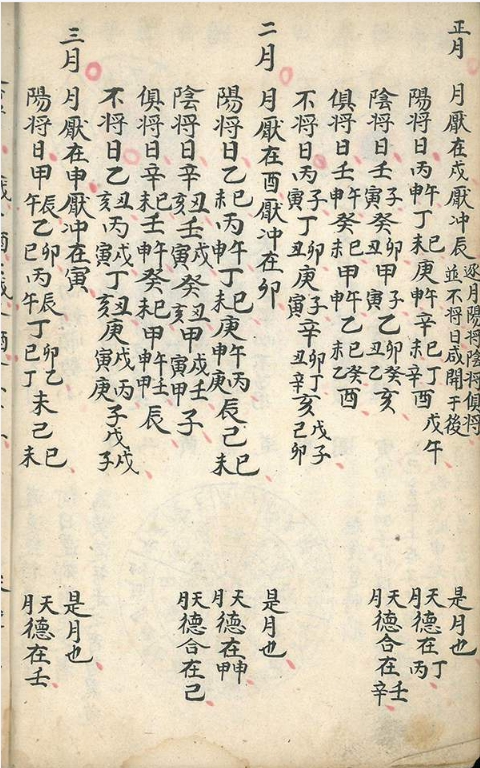 正月 月厭在戌厭冲辰 逐月陽將陰將俱將並不將日咸開于後 是月也
陽将日丙午申丁巳未庚午申辛巳未丁辛酉戊午 天月德在丁丙
陰将日壬子寅癸卯丑甲子寅乙卯丑癸乙亥 天月德合在壬辛
俱將日壬午申癸巳未甲午申乙巳未癸乙酉
不将日丙子寅丁卯丑庚子寅辛卯丑丁辛亥戊子己卯
二月 月厭在酉厭冲在卯 是月也
陽将日乙巳未丙午申丁巳未庚午申丙庚辰己巳未 天月德在申甲
陰将日辛丑亥壬戌寅癸丑亥甲戌寅壬甲子 天月德合在己
俱將日辛巳未壬午申癸巳未甲午申壬甲辰
不将日乙丑亥丙戌寅丁丑亥庚戌寅丙庚子戊戌子
三月 月厭在申厭冲在寅 是月也
陽将日甲辰午乙卯巳丙辰午丁卯巳乙丁未己巳未 天月德在壬